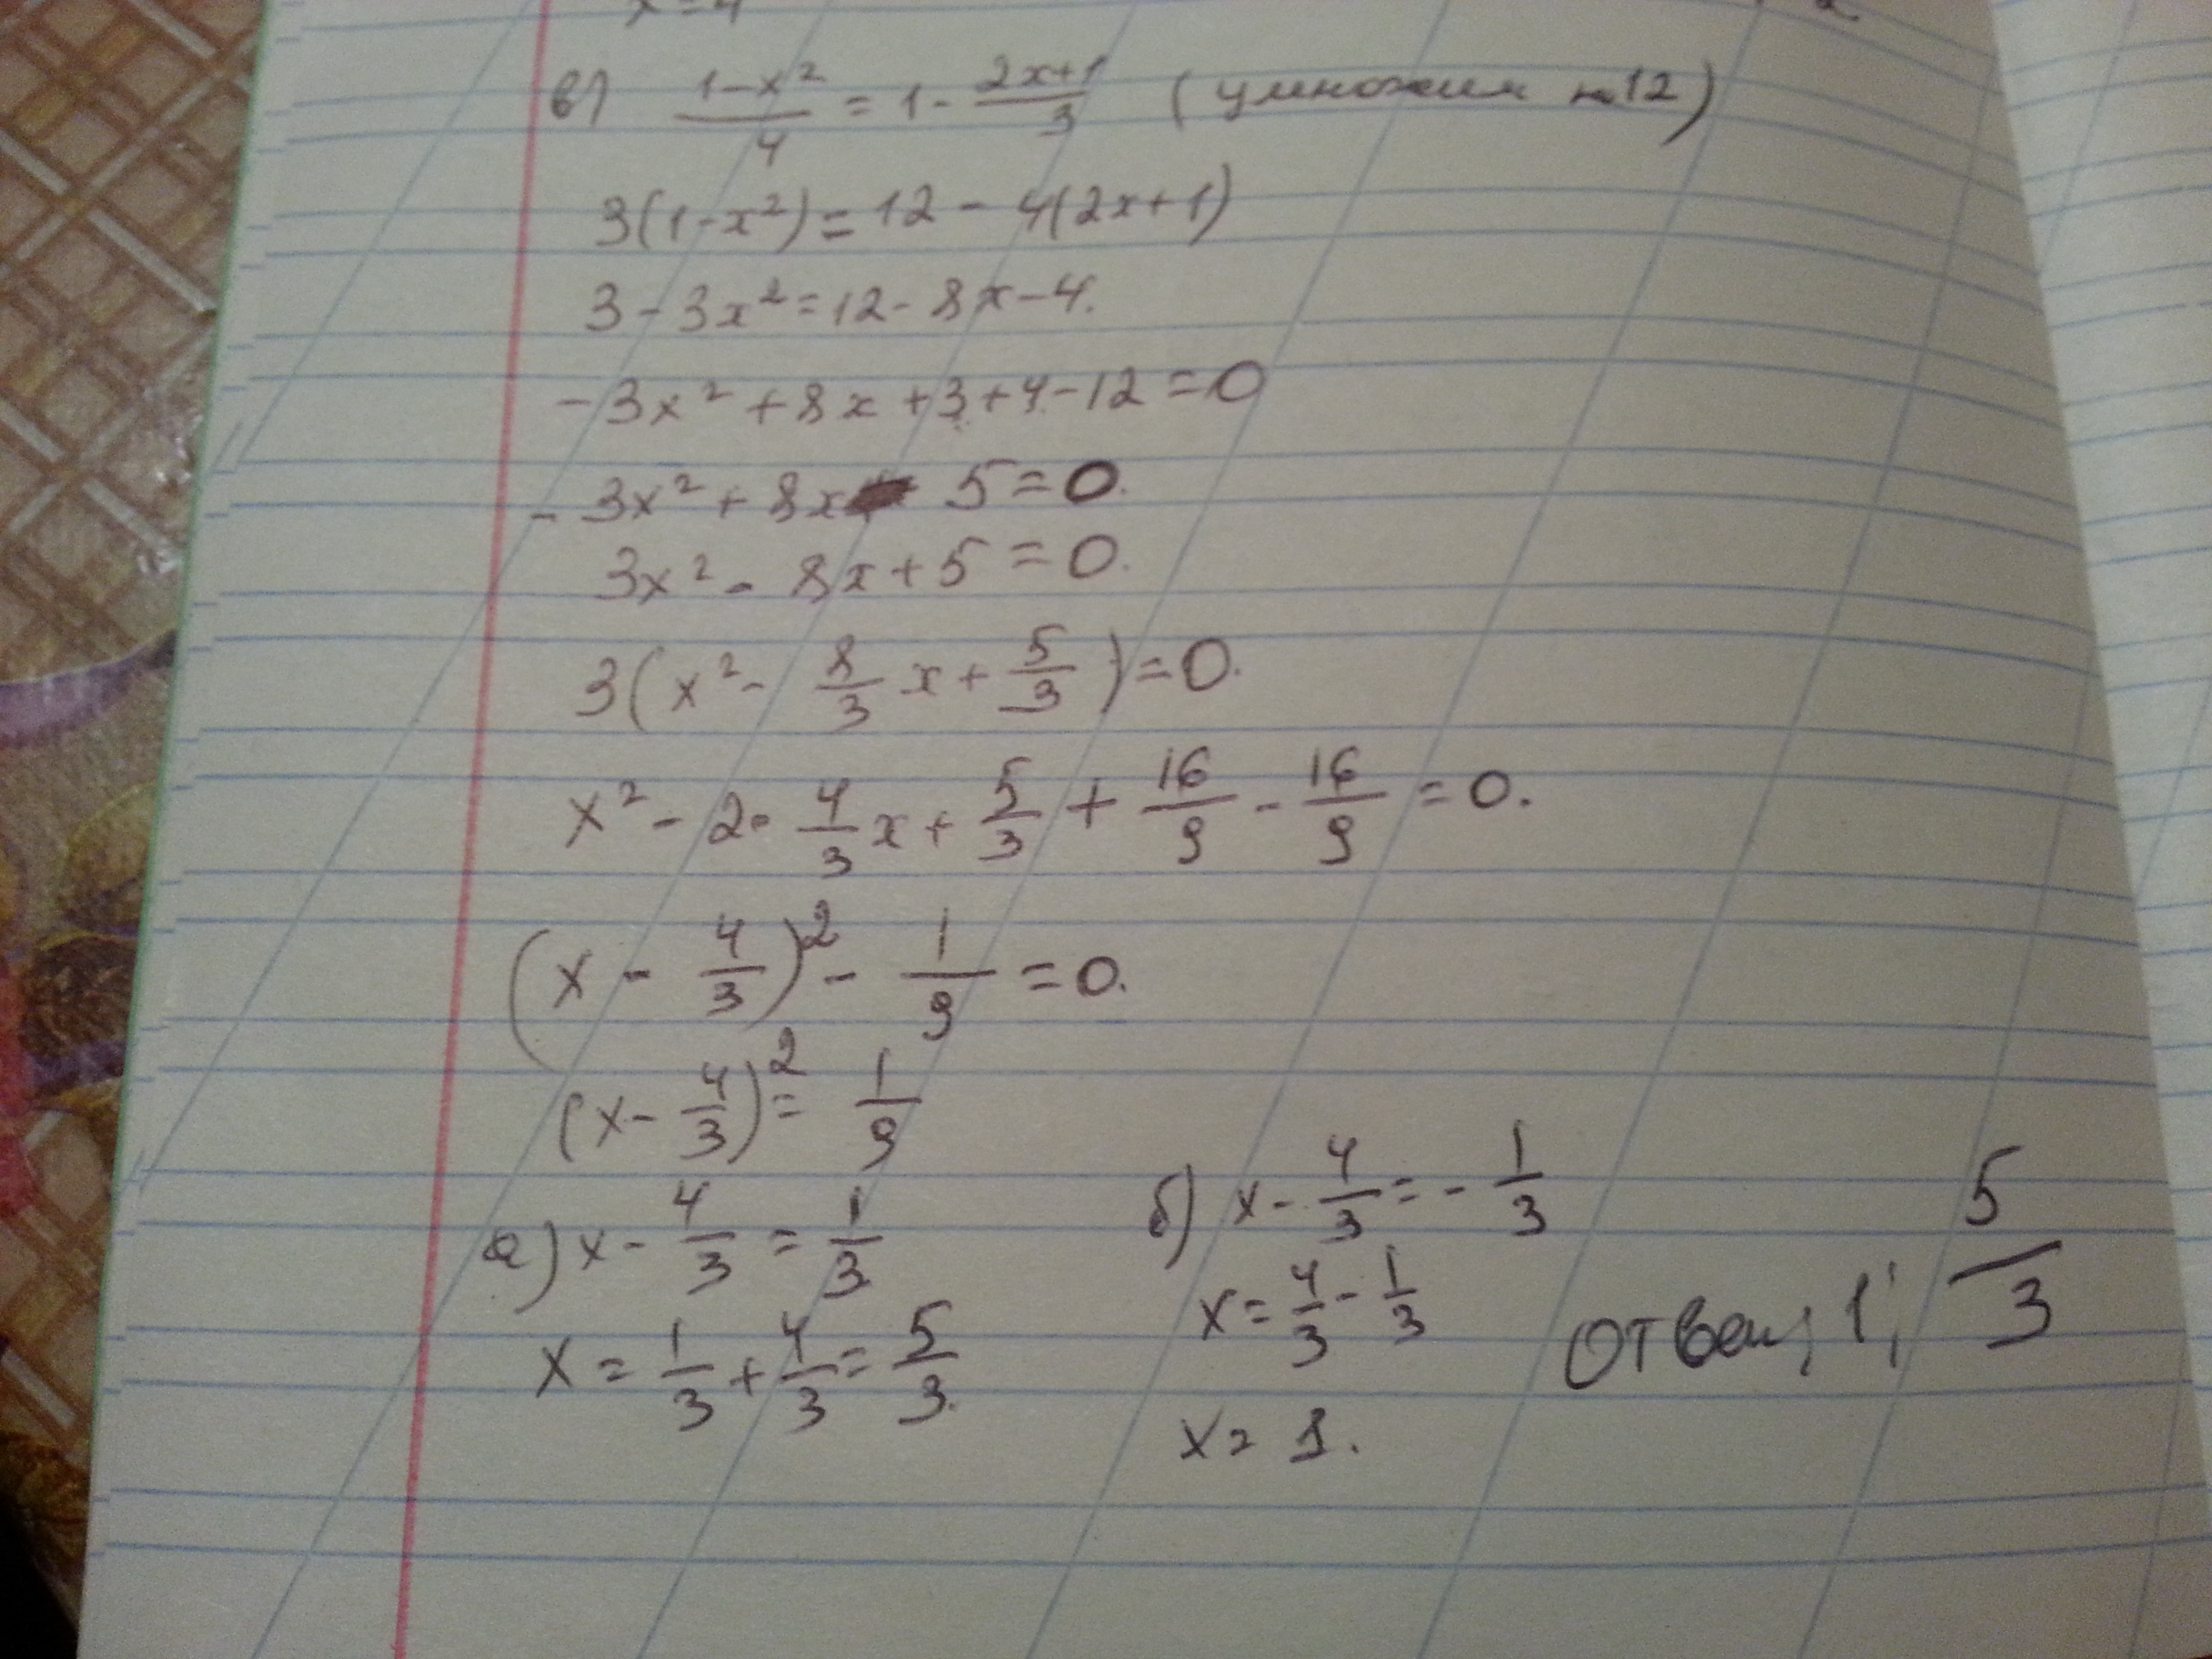 x=4
в) (1-x²)/4 = 1 - (2x+1)/3 (умножим на 12)
3(1-x²) = 12 - 4(2x+1)
3 - 3x² = 12 - 8x - 4.
-3x² + 8x + 3 + 4 - 12 = 0
- 3x² + 8x - 5 = 0.
3x² - 8x + 5 = 0.
3(x² - 8/3 x + 5/3) = 0.
x² - 2· 4/3 x + 5/3 + 16/9 - 16/9 = 0.
(x - 4/3)² - 1/9 = 0.
(x - 4/3)² = 1/9
а) x - 4/3 = 1/3
x = 1/3 + 4/3 = 5/3.
б) x - 4/3 = - 1/3
x = 4/3 - 1/3
x = 1.
Ответ 1; 5/3